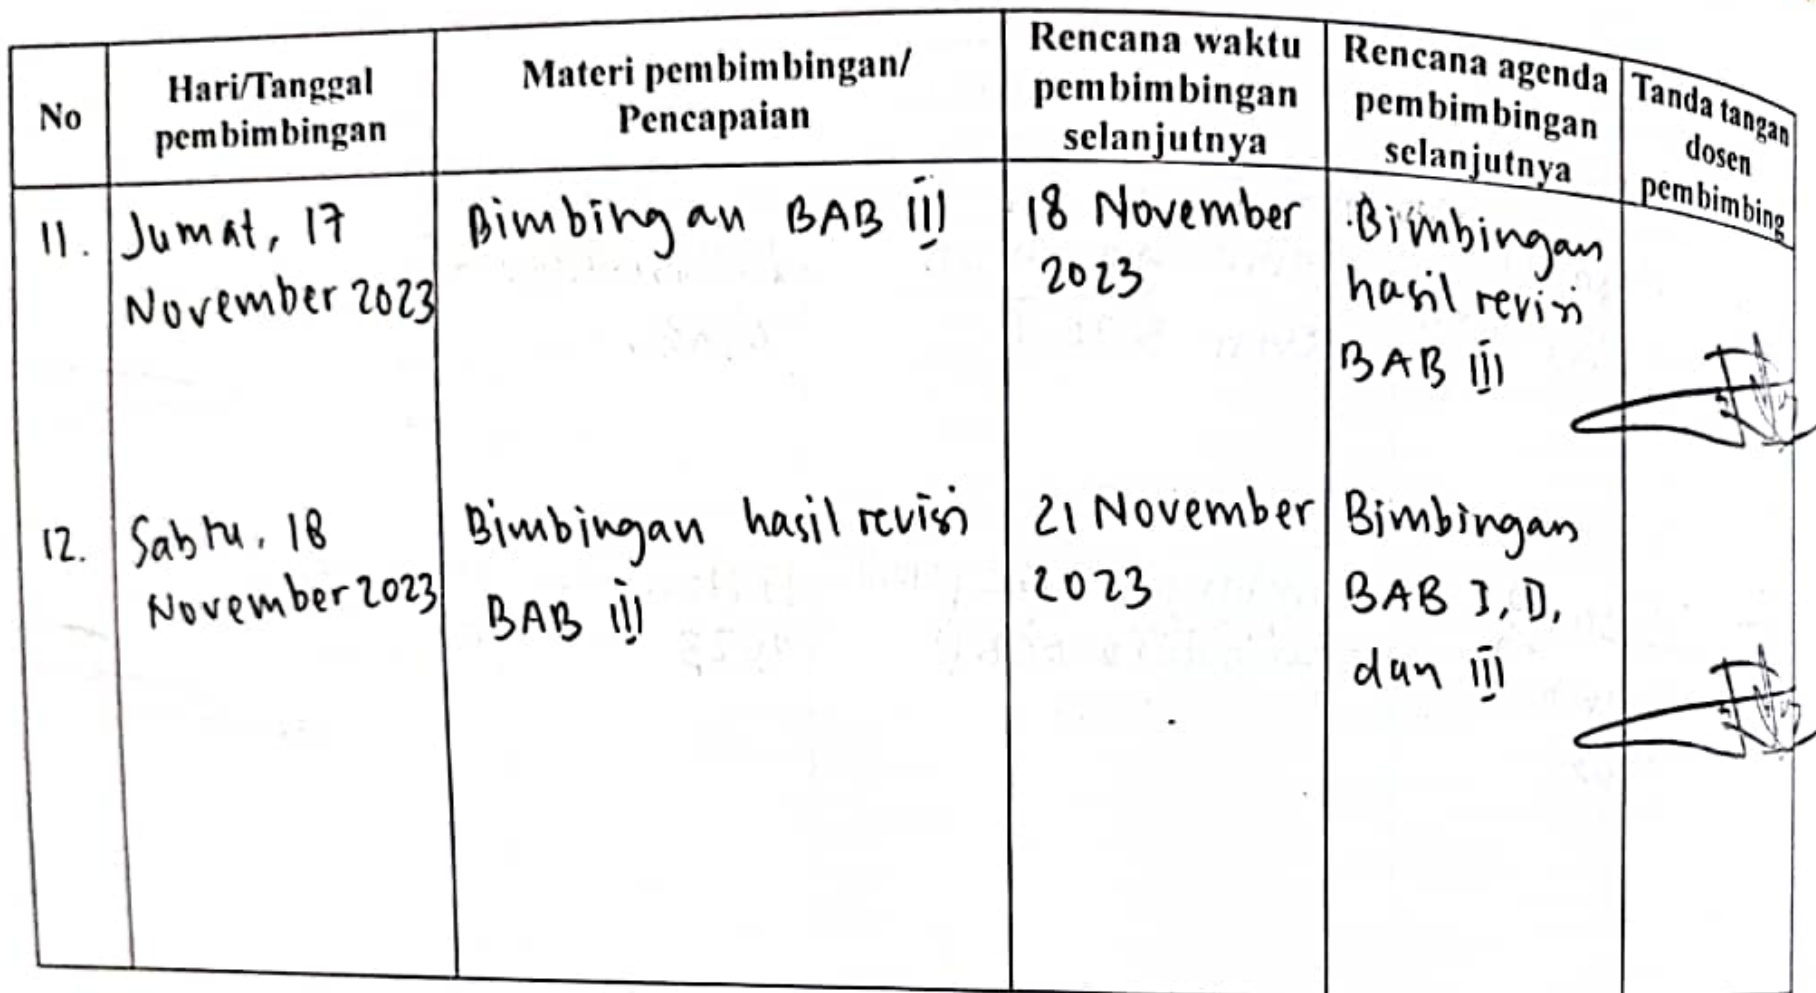 No
Hari/Tanggal
pembimbingan
Materi pembimbingan/
Pencapaian
Rencana waktu
pembimbingan
selanjutnya
Rencana agenda
pembimbingan
selanjutnya
Tanda tangan
dosen
pembimbing
11.
Jumat, 17
November 2023
Bimbingan BAB III
18 November
2023
Bimbingan
hasil revisi
BAB III
12.
Sabtu, 18
November 2023
Bimbingan hasil revisi
BAB III
21 November
2023
Bimbingan
BAB I, II,
dan III